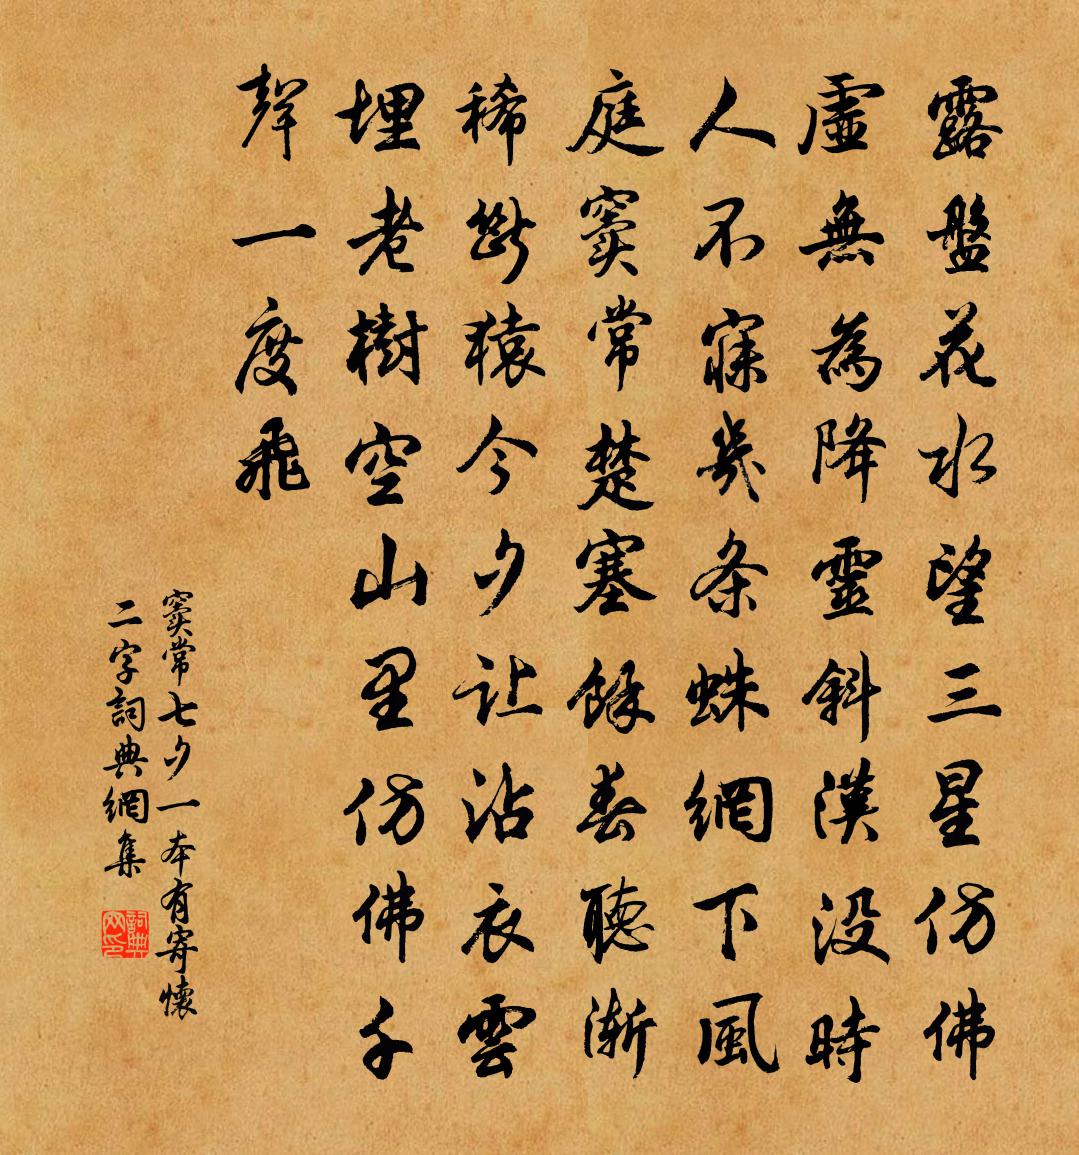 露盤花水望三星仿佛
虛無為降靈斜漢没時
人不寐幾条蛛網下風
庭竇常楚塞餘春聽漸
稀斷猿今夕让沾衣雲
埋老樹空山里仿佛千
聲一度飛
竇常七夕一本有寄懷
二字詞典網集
詞典网印